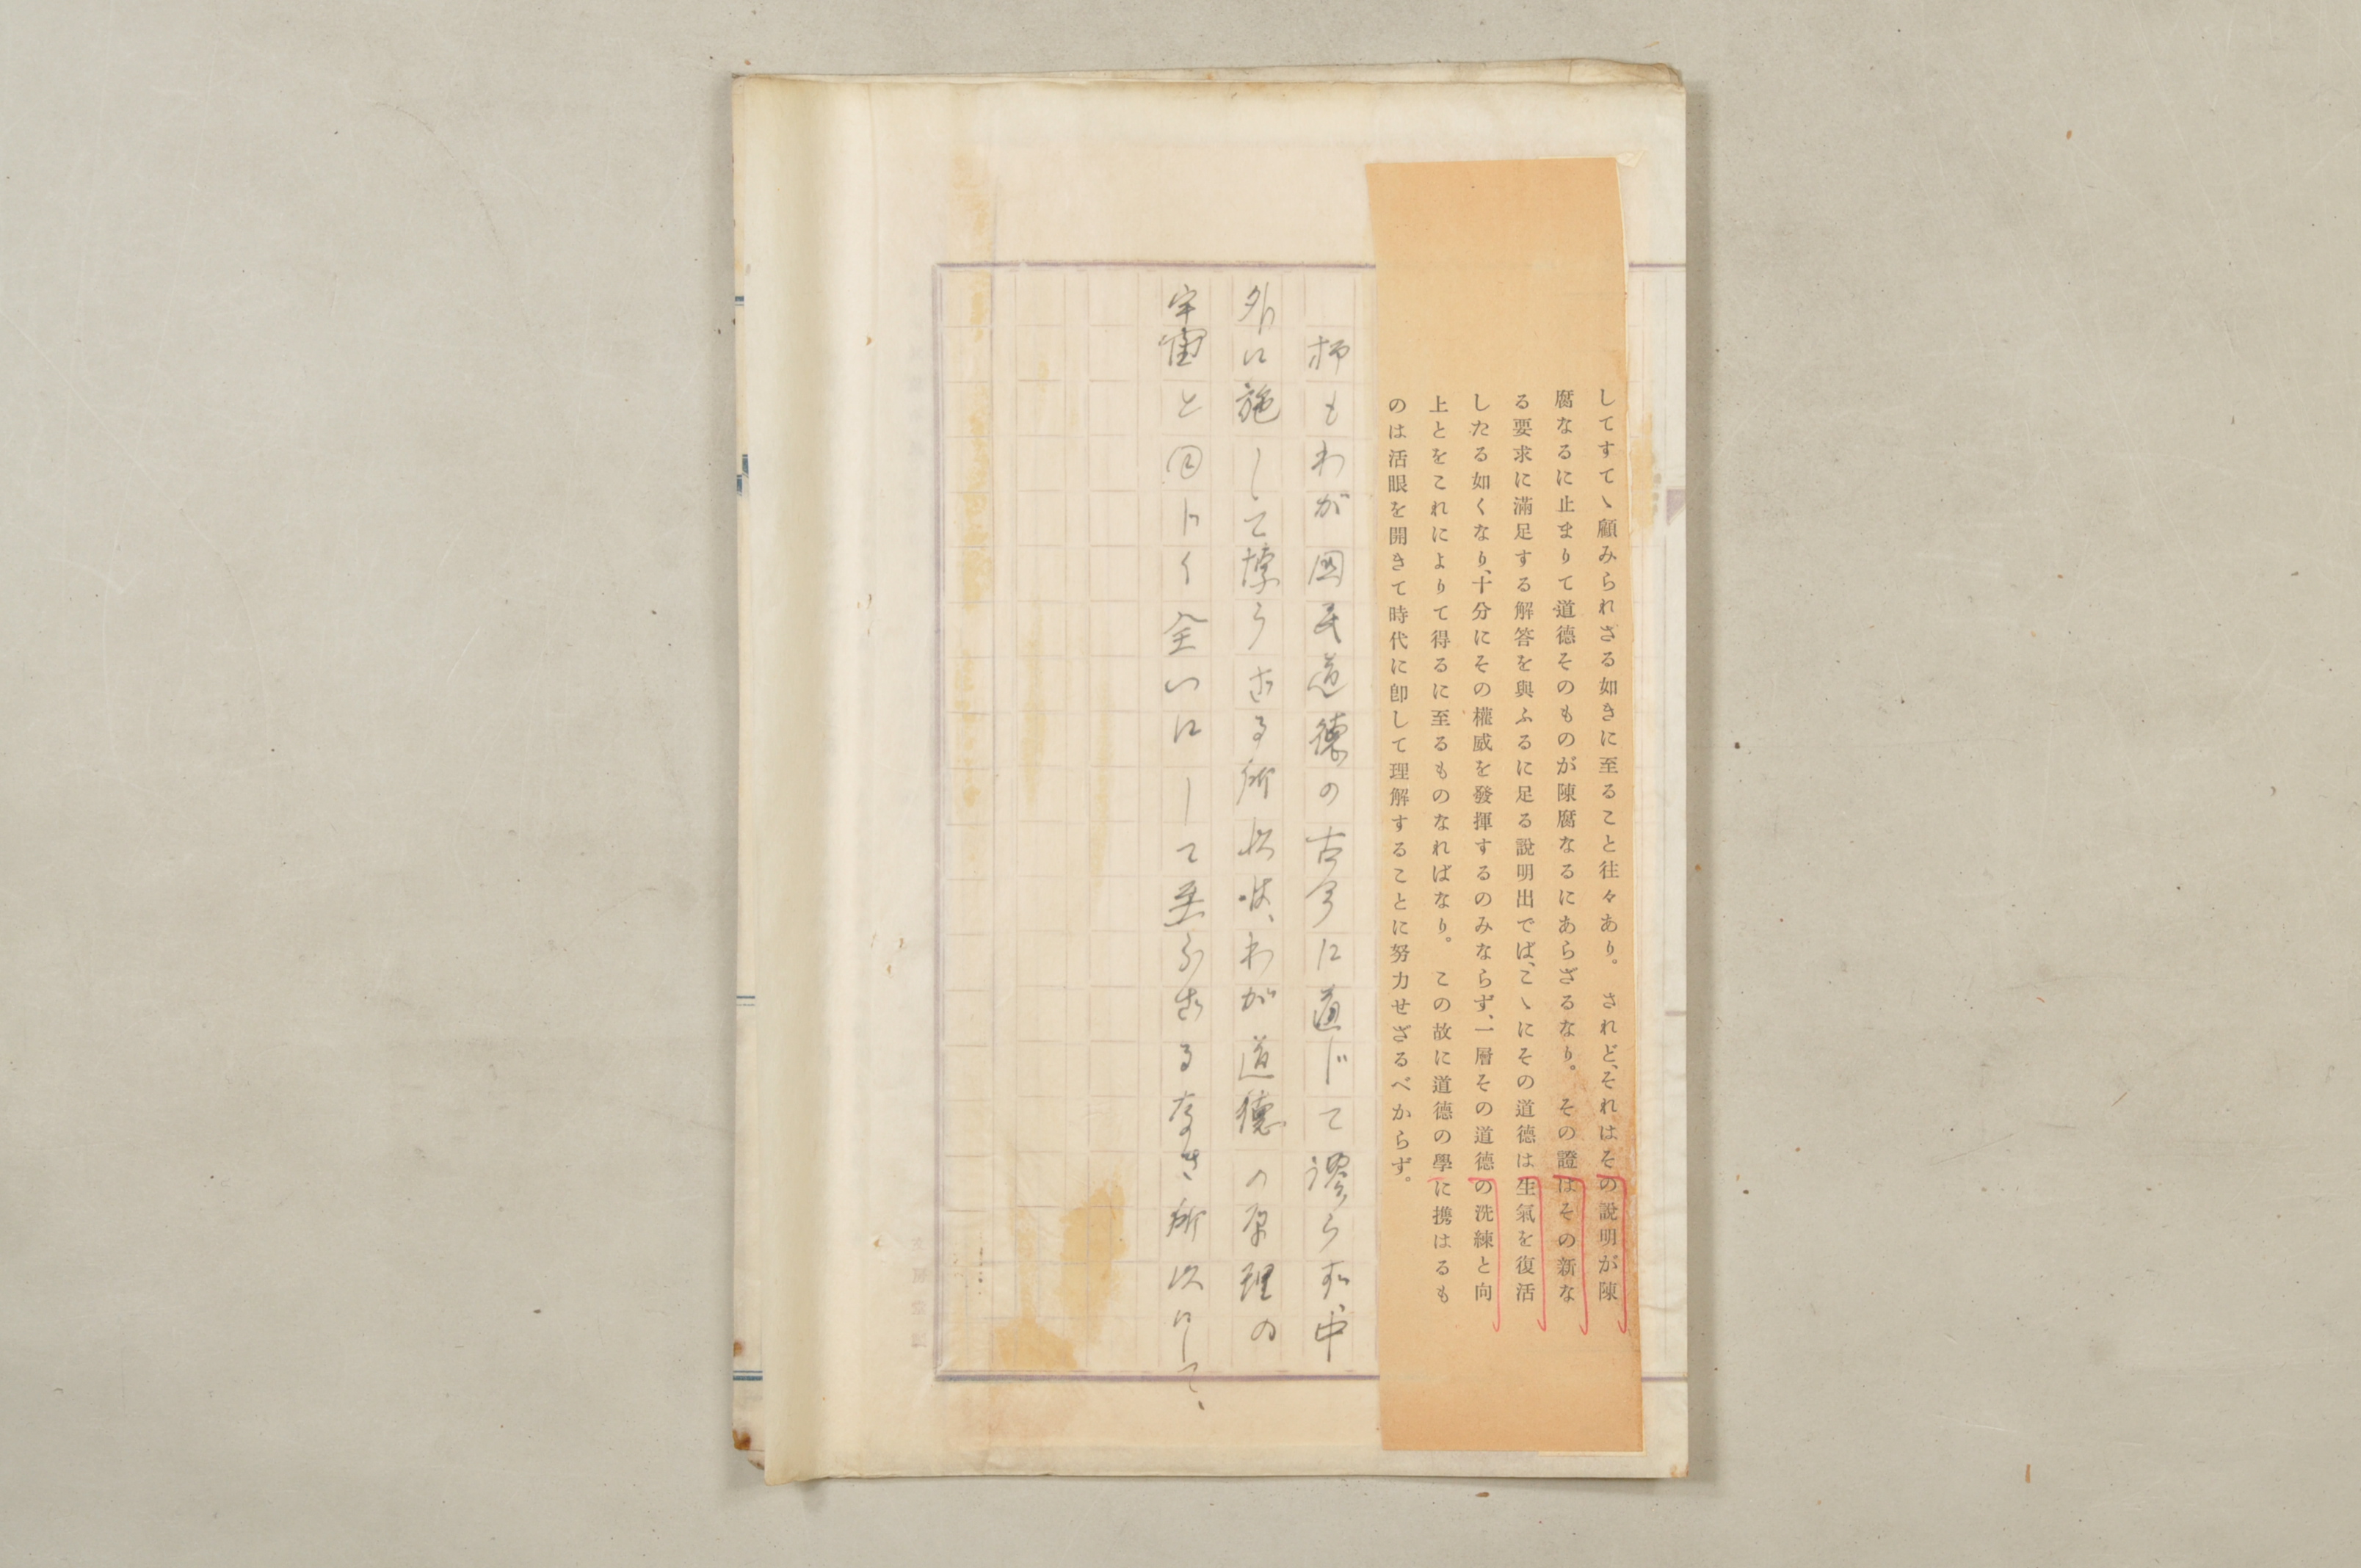 してすてゝ顧みられざる如きに至ること往々あり。　されど、それはその說明が陳
腐なるに止まりて道德そのものが陳腐なるにあらざるなり。　その證はその新な
る要求に滿足する解答を與ふるに足る說明出でば、こゝにその道德は生氣を復活
したる如くなり、十分にその權威を發揮するのみならず、一層その道德の洗練と向
上とをこれによりて得るに至るものなればなり。　この故に道德の學に携はるも
のは活眼を開きて時代に卽して理解することに努力せざるべからず。
抑もわが國民道德の古今に通じて謬らず、中
外に施して悖らざる所以は、わが道德の原理の
宇宙と同じく全いにして至らざるなき所以にして、